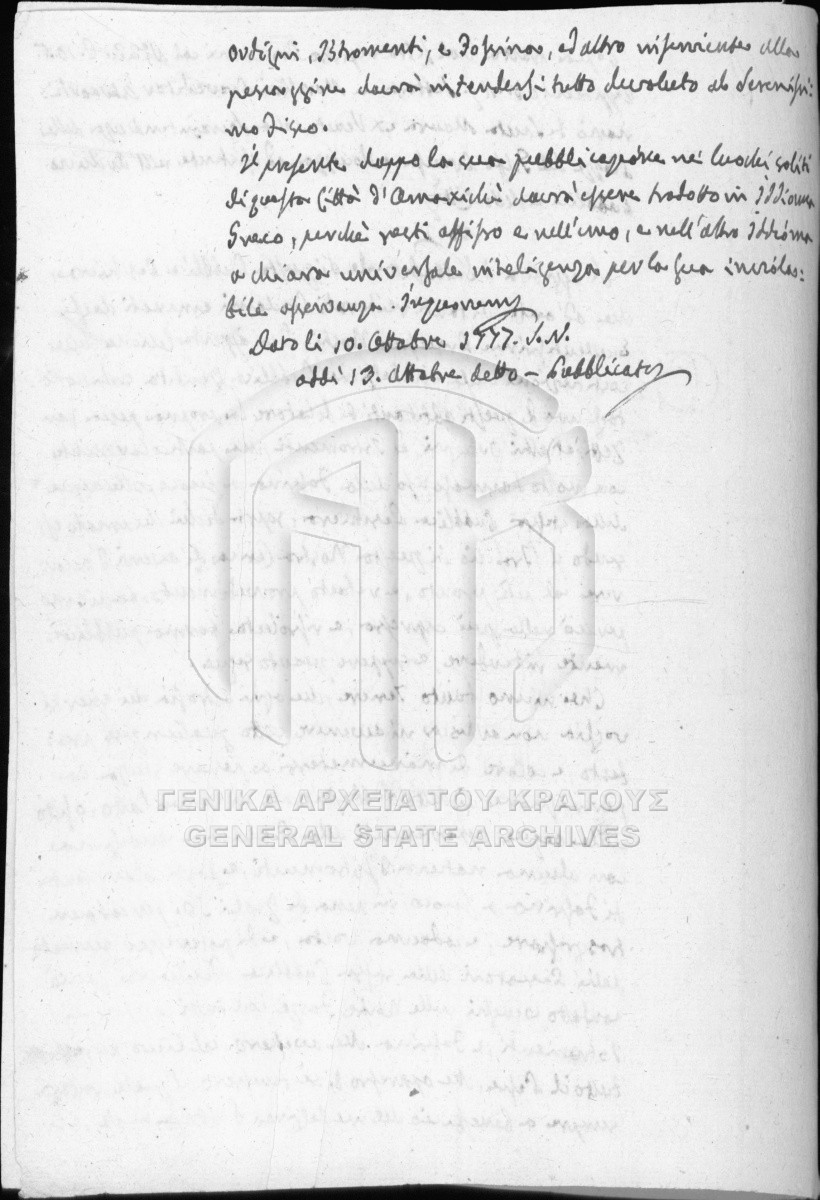 ordigni, Istromenti, e Tossina, ed altro inserviente alla
pescaggione dovrà intendersi tutto devoluto al Serenissi:
mo Fisco.
Il presente doppo la sua pubblicazione nei luochi soliti
di questa Città d'Amaxichi dovrà essere tradotto in Iddioma
Greco, perchè resti affisso e nell'uno, e nell'altro Iddioma
a chiara universale inteligenza per la sua inviola:
bile osservanza.
Dato li 10. Ottobre 1777. S. N.
addi 13. Ottobre detto – Pubblicato
ΓΕΝΙΚΑ ΑΡΧΕΙΑ ΤΟΥ ΚΡΑΤΟΥΣ
GENERAL STATE ARCHIVES